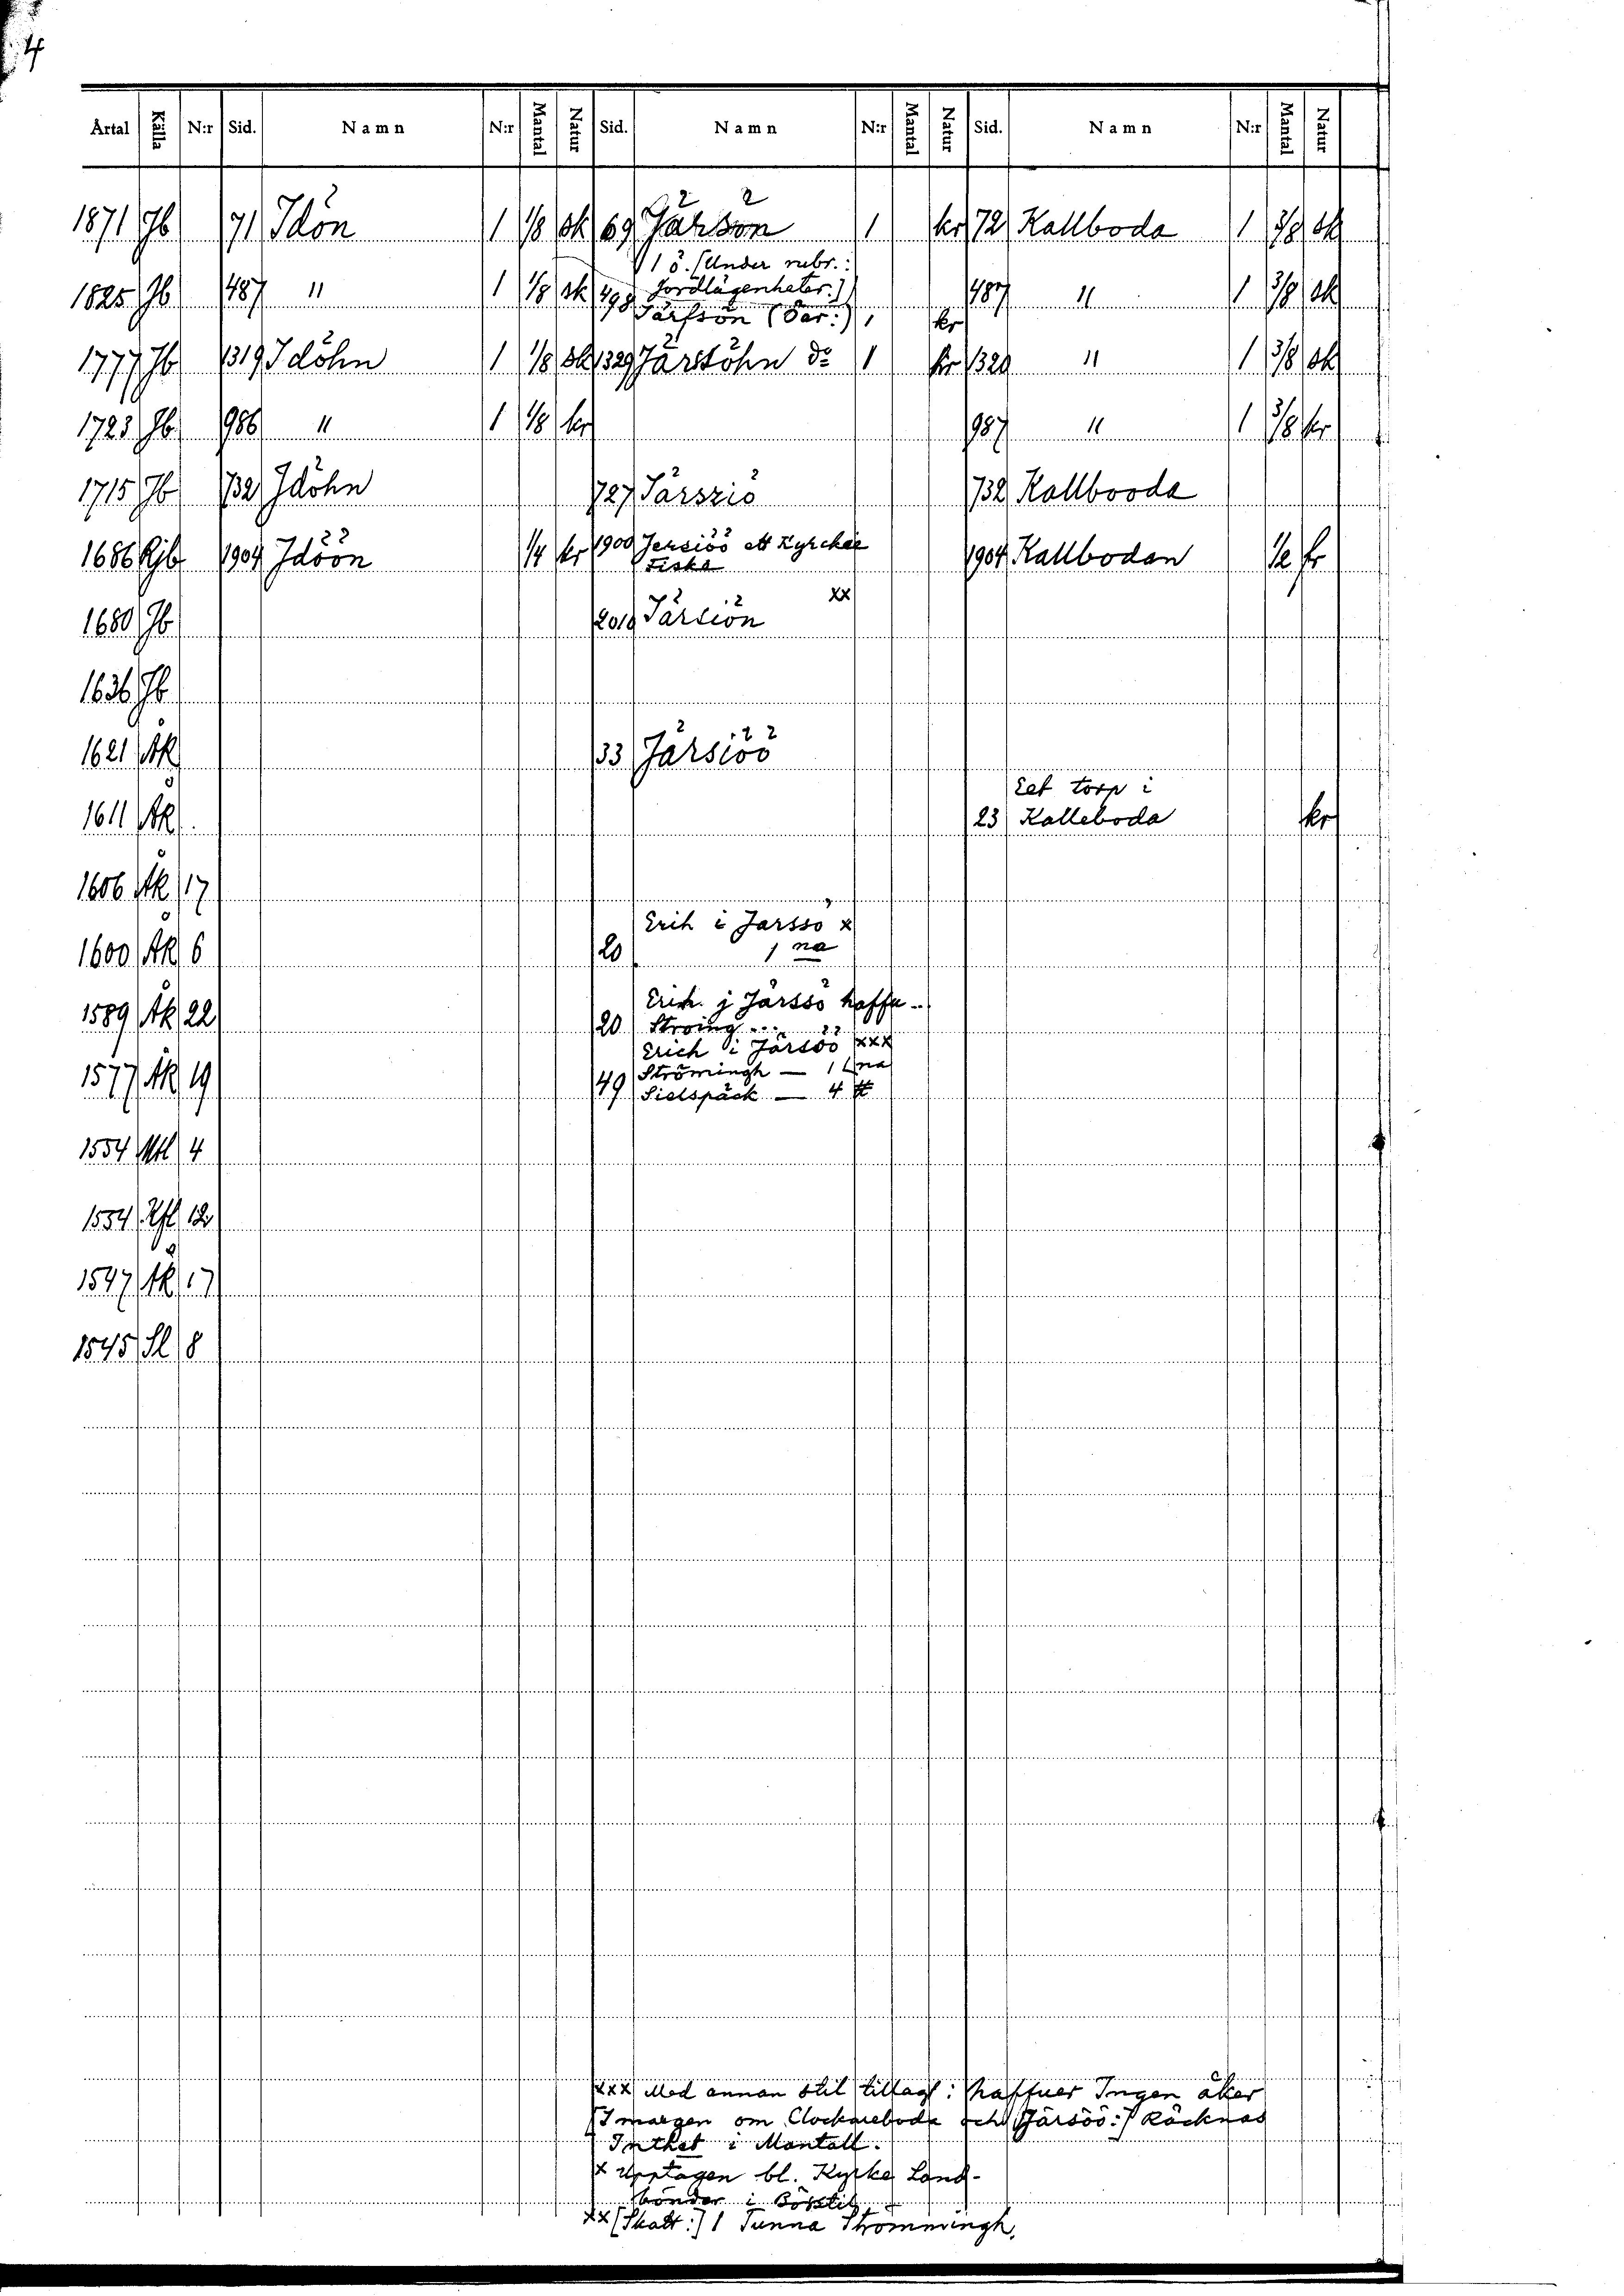 4
Årtal Källa N:r Sid. Namn N:r Mantal Natur Sid. Namn N:r Mantal Natur Sid. Namn N:r Mantal Natur
1871 Jb 71 Idön 1 1/8 sk 69 Järsön 1 kr 72 Kallboda 1 3/8 sk
1 ö. [Under rubr.:
1825 Jb 487 " 1 1/8 sk 498 Jordlägenheter.] 487 " 1 3/8 sk
Järfsön (Öar:) 1 kr
1777 Jb 1319 Idöhn 1 1/8 sk 1329 Järsöhn do 1 kr 1320 " 1 3/8 sk
1723 Jb 986 " 1 1/8 kr 987 " 1 3/8 kr
1715 Jb 732 Jdöhn 727 Järsziö 732 Kallbooda
1686 Rjb 1904 Jdöön 1/4 kr 1900 Jersiöö ett Kyrckie 1904 Kallbodan 1/2 fr
Fiske
xx
1680 Jb 2010 Järsiön
1636 Jb
1621 Åk 33 Järsiöö
Eet torp i
1611 Åk 23 Kalleboda kr
1606 Åk 17
Erih i Jarssö x
1600 Åk 6 20 1 na
Erich. j Järssö haffu..
1589 Åk 22 20 Stroing...
Erich i Järsöö xxx
Strömingh — 1 na
1577 Åk 19 49 Sielspäck — 4 ℔
1554 Mtl 4
1554 12
1547 Åk 17
1545 Sl 8
xxx Med annan stil tillagt: haffuer Ingen åker
[I margen om Clockareboda och Järsöö:] Räcknas
Inthet i Mantall.
x Upptagen bl. Kyrke Land-
bönder i Börstil
xx [Skatt:] 1 Tunna Strömmingh.